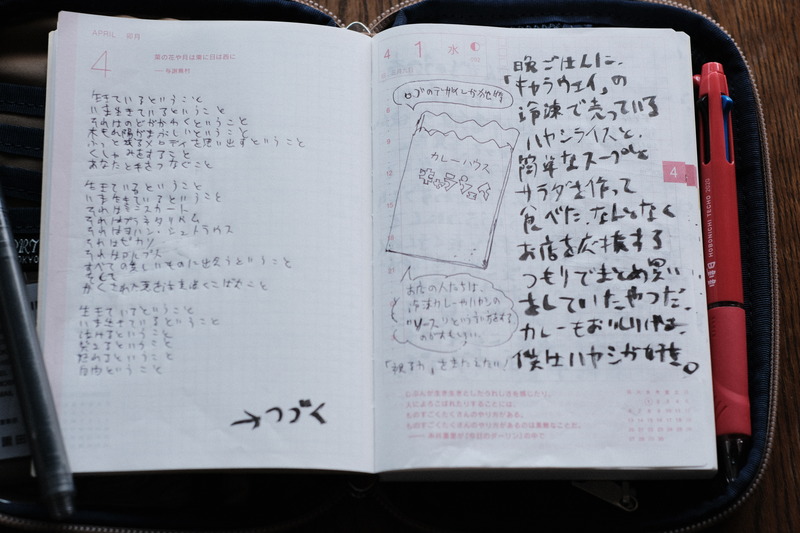 APRIL 卯月
4
菜の花や月は東に日は西に
―― 与謝蕪村
生きているということ
いま生きているということ
それはのどがかわくということ
木もれ陽がまぶしいということ
ふっと或るメロディを思い出すということ
くしゃみをすること
あなたと手をつなぐこと
生きているということ
いま生きているということ
それはミニスカート
それはプラネタリウム
それはヨハン・シュトラウス
それはピカソ
それはアルプス
すべての美しいものに出会うということ
そして
かくされた悪を注意深くこばむこと
生きているということ
いま生きているということ
泣けるということ
笑えるということ
怒れるということ
自由ということ
→つづく
4 1 水
ロゴのデザインが
カレーハウス
キャラウェイ
お店の人たちは、
冷凍カレーやハヤシの
晩ごはんに、
「キャラウェイ」の
冷凍で売っている
ハヤシライスと、
簡単なスープと
サラダを作って
食べた。なんとなく
お店を応援する
つもりでまとめ買い
をしていたやつだ。
カレーもおいしいけど
僕はハヤシが好き。
じぶんが生き生きとしたうれしさを感じたり、
人によろこばれたりすることには、
ものすごくたくさんのやり方がある。
ものすごくたくさんのやり方があるのは素敵なことだ。
―― 糸井重里が『今日のダーリン』の中で
4
HOBONICHI TECHO 2020